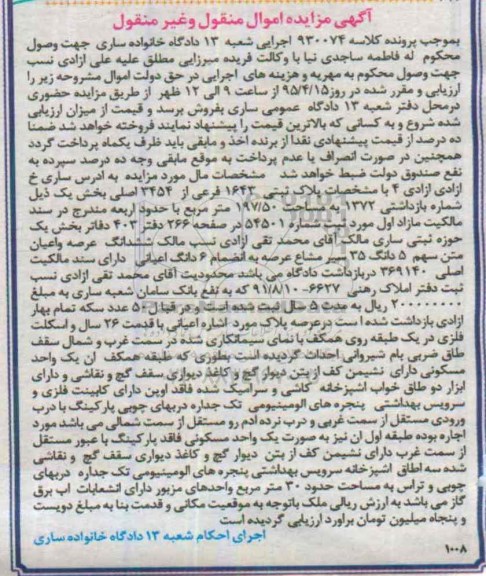 آگهی مزایده اموال منقول وغیر منقول
بموجب پرونده کلاسه ۹۳۰۰۷۴ اجرایی شعبه ۱۳ دادگاه خانواده ساری جهت وصول
محکوم له فاطمه ساجدی نیا با وکالت فریده میرزایی مطلق علیه علی ازادی نسب
جهت وصول محکوم به مهریه و هزینه های اجرایی در حق دولت اموال مشروحه زیر را
ارزیابی و مقرر شده در روز ۹۵/۴/۱۵ از ساعت ۹ الی ۱۲ ظهر از طریق مزایده حضوری
درمحل دفتر شعبه ۱۳ دادگاه عمومی ساری بفروش برسد و قیمت از میزان ارزیابی
شده شروع و به کسانی که بالاترین قیمت را پیشنهاد نمایند فروخته خواهد شد ضمنا
ده درصد از قیمت پیشنهادی نقدا از برنده اخذ و مابقی باید ظرف یکماه پرداخت گردد
همچنین در صورت انصراف یا عدم پرداخت به موقع مابقی وجه ده درصد سپرده به
نفع صندوق دولت ضبط خواهد شد مشخصات مال مورد مزایده به ادرس ساری خ
ازادی ازادی ۴ با مشخصات پلاک ثبتی ۱۶۴۳ فرعی از ۳۴۵۴ اصلی بخش یک ذیل
شماره بازداشتی ۱۳۷۲ به مساحت ۱۹۷/۵۰ متر مربع با حدود اربعه مندرج در سند
مالکیت مازاد اول مورد ثبت شماره ۵۴۵۰۱ در صفحه ۲۶۶ دفتر ۴۰۱ دفاتر بخش یک
حوزه ثبتی ساری مالک آقای محمد تقی ازادی نسب مالک ششدانگ عرصه واعیان
متن سهم ۵ دانگ ۳۵ سیر مشاع عرصه به انضمام ۶ دانگ اعیانی دارای سند مالکیت
اصلی ۳۶۹۱۴۰ دربازداشت دادگاه می باشد محدودیت آقای محمد تقی ازادی نسب
ثبت دفتر املاک رهنی ۶۶۲۷-۹۱/۸/۱۰ که به نفع بانک سامان شعبه ساری به مبلغ
ریال به مدت ۵ سال ثبت شده است و در قبال ۵۰ عدد سکه تمام بهار
ازادی بازداشت شده است درعرصه پلاک مورد اشاره اعیانی با قدمت ۲۶ سال و اسکلت
فلزی در یک طبقه روی همکف با نمای سیمانکاری شده در سمت غرب و شمال سقف
طاق ضربی بام شیروانی احداث گردیده است بطوری که طبقه همکف ان یک واحد
مسکونی دارای نشیمن کف از بتن دیوار گچ و کاغذ دیواری سقف گچ و نقاشی و دارای
ابزار دو طاق خواب اشپزخانه کاشی و سرامیک شده فاقد اوپن دارای کابینت فلزی و
سرویس بهداشتی پنجره های الومینیومی تک جداره دربهای چوبی پارکینگ با درب
ورودی مستقل از سمت غربی و درب نرده ادم رو مستقل از سمت شمالی می باشد مورد
اجاره بوده طبقه اول ان نیز به صورت یک واحد مسکونی فاقد پارکینگ با عبور مستقل
از سمت غرب دارای نشیمن کف از بتن دیوار گچ و کاغذ دیواری سقف گچ و نقاشی
شده سه اطاق اشپزخانه سرویس بهداشتی پنجره های الومینیومی تک جداره دربهای
چوبی و تراس به مساحت حدود ۳۰ متر مربع واحدهای مزبور دارای انشعابات اب برق
گاز می باشد به ارزش ریالی ملک باتوجه به موقعیت مکانی و قدمت بنا به مبلغ دویست
و پنجاه میلیون تومان براورد ارزیابی گردیده است
اجرای احکام شعبه ۱۳ دادگاه خانواده ساری
۱۰۰۸